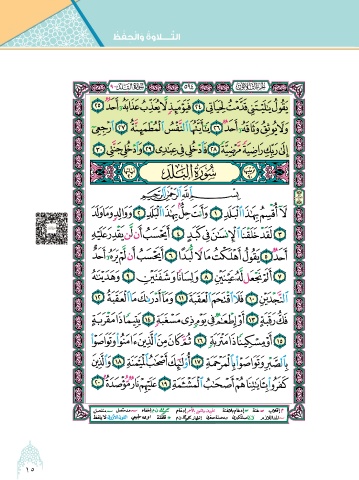 التــلاوة والحفظ
الجزء الثلاثون ٥٩٤ سورة البلد ٩٠
يَقُولُ يَٰلَيْتَنِى قَدَّمْتُ لِحَيَاتِى ٢٤ فَيَوْمَئِذٍ لَّا يُعَذِّبُ عَذَابَهُۥٓ أَحَدٌ ٢٥
وَلَا يُوثِقُ وَثَاقَهُۥٓ أَحَدٌ ٢٦ يَٰٓأَيَّتُهَا ٱلنَّفْسُ ٱلْمُطْمَئِنَّةُ ٢٧ ٱرْجِعِىٓ
إِلَىٰ رَبِّكِ رَاضِيَةً مَّرْضِيَّةً ٢٨ فَٱدْخُلِى فِى عِبَٰدِى ٢٩ وَٱدْخُلِى جَنَّتِى ٣٠
سُورَةُ الْبَلَدِ
بِسْمِ ٱللَّهِ ٱلرَّحْمَٰنِ ٱلرَّحِيمِ
لَآ أُقْسِمُ بِهَٰذَا ٱلْبَلَدِ ١ وَأَنتَ حِلٌّۢ بِهَٰذَا ٱلْبَلَدِ ٢ وَوَالِدٍ وَمَا وَلَدَ
٣ لَقَدْ خَلَقْنَا ٱلْإِنسَٰنَ فِى كَبَدٍ ٤ أَيَحْسَبُ أَن لَّن يَقْدِرَ عَلَيْهِ
أَحَدٌ ٥ يَقُولُ أَهْلَكْتُ مَالًا لُّبَدًا ٦ أَيَحْسَبُ أَن لَّمْ يَرَهُۥٓ أَحَدٌ
٧ أَلَمْ نَجْعَل لَّهُۥ عَيْنَيْنِ ٨ وَلِسَانًا وَشَفَتَيْنِ ٩ وَهَدَيْنَٰهُ
ٱلنَّجْدَيْنِ ١٠ فَلَا ٱقْتَحَمَ ٱلْعَقَبَةَ ١١ وَمَآ أَدْرَىٰكَ مَا ٱلْعَقَبَةُ ١٢
فَكُّ رَقَبَةٍ ١٣ أَوْ إِطْعَٰمٌ فِى يَوْمٍ ذِى مَسْغَبَةٍ ١٤ يَتِيمًا ذَا مَقْرَبَةٍ
١٥ أَوْ مِسْكِينًا ذَا مَتْرَبَةٍ ١٦ ثُمَّ كَانَ مِنَ ٱلَّذِينَ ءَامَنُوا۟ وَتَوَاصَوْا۟
بِٱلصَّبْرِ وَتَوَاصَوْا۟ بِٱلْمَرْحَمَةِ ١٧ أُو۟لَٰٓئِكَ أَصْحَٰبُ ٱلْمَيْمَنَةِ ١٨ وَٱلَّذِينَ
كَفَرُوا۟ بِـَٔايَٰتِنَا هُمْ أَصْحَٰبُ ٱلْمَشْـَٔمَةِ ١٩ عَلَيْهِمْ نَارٌ مُّؤْصَدَةٌۢ ٢٠
١٥